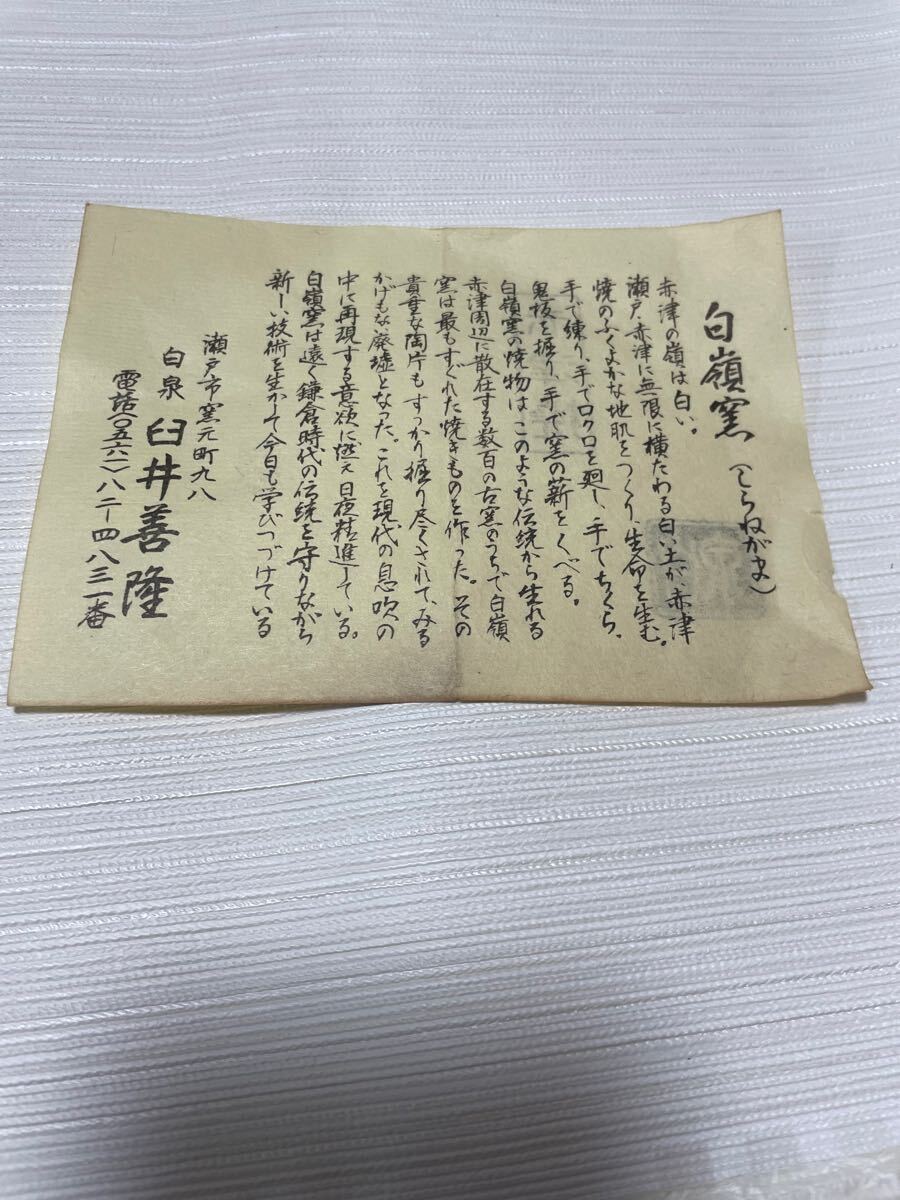 白嶺窯(しらねがま)
赤津の嶺は白い。
瀬戸、赤津に無限に横たわる白い土が、赤津
焼のふくよかな地肌をつくり、生命を生む。
手で練り、手でロクロを廻し、手でちくら、
鬼板を掘り、手で窯の薪をくべる。
白嶺窯の焼物は、このような伝統から生れる
赤津周辺に散在する数百の古窯のうちで白嶺
窯は最もすぐれた焼きものを作った。その
貴重な陶片もすっかり掘り尽くされて、みる
かげもない廃墟となった。これを現代の息吹の
中に再現する意欲に燃え日夜精進している。
白嶺窯は遠く鎌倉時代の伝統を守りながら
新しい技術を生かして今日も学びつづけている
瀬戸市窯元町九八
白泉 臼井善隆
電話〇五六一(八二)四八三一番